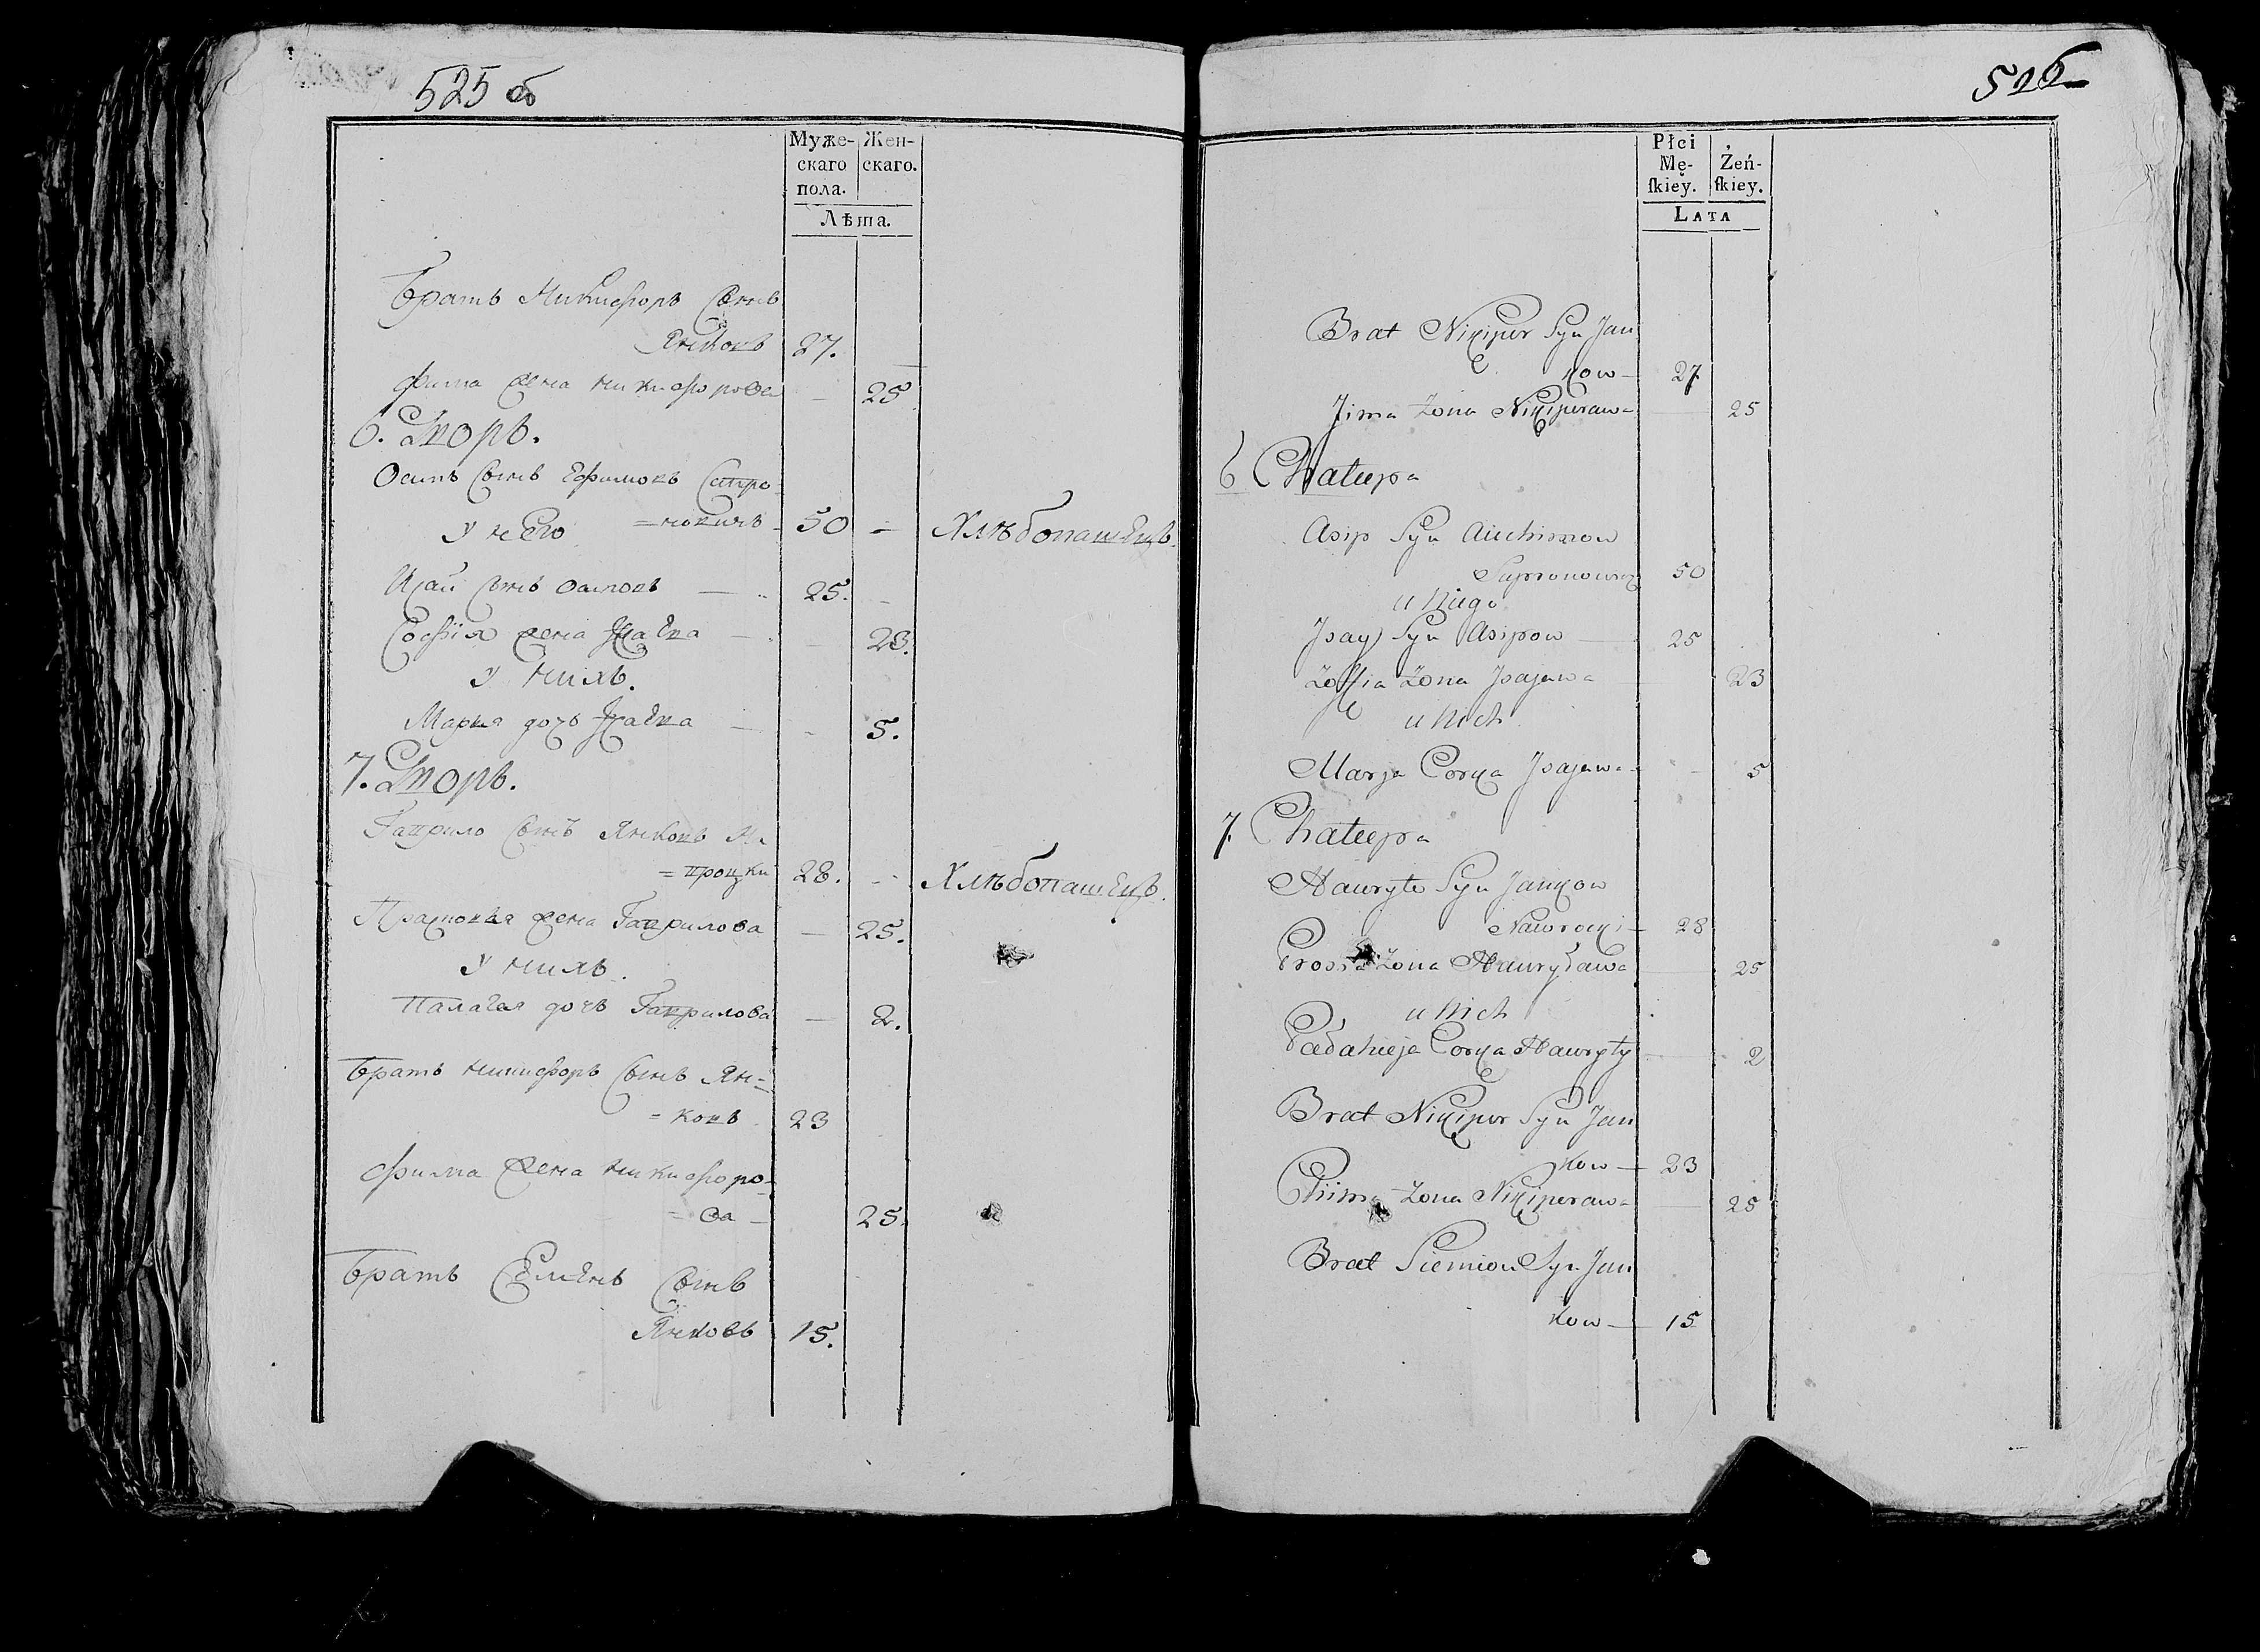 525 об
Муже-
скаго
пола.
Жен-
скаго.
Лѣта.
Братъ Никифоръ Сынъ
Янковъ 27.
Фима Жена Никифорова — 25
6. Дворъ.
Осипъ Сынъ Ефимовъ Сапро-
=новичъ 50 - Хлѣбопашецъ.
У него
Исай Сынъ Осиповъ — 25. -
Софія Жена Исаева — 23.
У нихъ.
Марья дочь Исаева — 5.
7. Дворъ.
Гаврило Сынъ Янковъ На-
=вроцки 28. - Хлѣбопашецъ.
Жена Гаврилова — 25.
У нихъ.
Палагея дочь Гаврилова — 2.
Братъ Никифоръ Сынъ Ян=
=ковъ 23
Фима Жена Никифоро-
=ва — 25.
Братъ Семенъ Сынъ
Янковъ 15.
526
Płci
Mę-
ſkiey.
Żeń-
ſkiey.
Lata
Brat Nikiper Syn Jan
kow — 27
Jima Zona Nikiperawa — 25
6 Chatupa
Asip Syn Auchimow
Sapronowicz 50
u Niego
Jsay Syn Asipow — 25
Zoffia Zona Jsajewa 23
u Nich
Marja Corka Jsajewa - 5
7. Chatupa
Hawryło Syn Jankow
Nawrocki — 28
Prosia Zona Hawryławа 25
u Nich
Pałahieja Corka Hawryły 2
Brat Nikiper Syn Jan
kow — 23
Chiima Zona Nikiperawa — 25
Brat Siemion Syn Jan
kow — 15